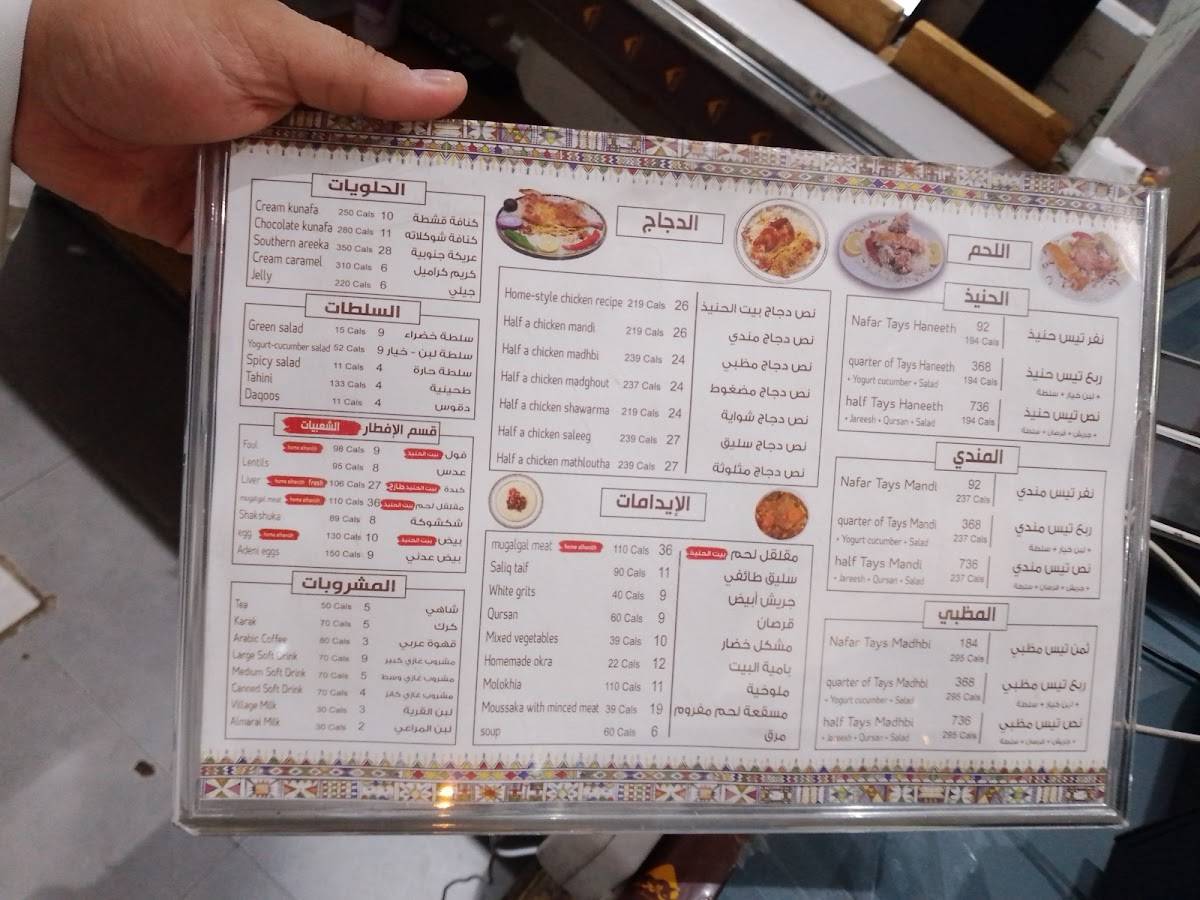 الحلويات
Cream kunafa 250 Cals 10 كنافة قشطة
Chocolate kunafa 280 Cals 11 كنافة شوكلاته
Southern areeka 350 Cals 28 عريكة جنوبية
Cream caramel 310 Cals 6 كريم كراميل
Jelly 220 Cals 6 جيلي
السلطات
Green salad 15 Cals 9 سلطة خضراء
Yogurt-cucumber salad 52 Cals 9 سلطة لبن - خيار
Spicy salad 11 Cals 4 سلطة حارة
Tahini 133 Cals 4 طحينية
Daqoos 11 Cals 4 دقوس
قسم الإفطار الشعبيات
Foul 98 Cals 9 بيت الحنيذ فول
Lentils 95 Cals 8 عدس
Liver fresh 106 Cals 27 بيت الحنيذ طازج كبدة
mugalgal meat 110 Cals 36 بيت الحنيذ مقلقل لحم
Shakshuka 89 Cals 8 شكشوكة
egg 130 Cals 10 بيت الحنيذ بيض
Adeni eggs 150 Cals 9 بيض عدني
المشروبات
Tea 50 Cals 5 شاهي
Karak 70 Cals 5 كرك
Arabic Coffee 80 Cals 3 قهوة عربي
Large Soft Drink 70 Cals 9 مشروب غازي كبير
Medium Soft Drink 70 Cals 5 مشروب غازي وسط
Canned Soft Drink 70 Cals 4 مشروب غازي كانز
Village Milk 30 Cals 3 لبن القرية
Almarai Milk 30 Cals 2 لبن المراعي
الدجاج
Home-style chicken recipe 219 Cals 26 نص دجاج بيت الحنيذ
Half a chicken mandi 219 Cals 26 نص دجاج مندي
Half a chicken madhbi 239 Cals 24 نص دجاج مظبي
Half a chicken madghout 237 Cals 24 نص دجاج مضغوط
Half a chicken shawarma 219 Cals 24 نص دجاج شواية
Half a chicken saleeg 239 Cals 27 نص دجاج سليق
Half a chicken mathloutha 239 Cals 27 نص دجاج مثلوثة
الإيدامات
mugalgal meat 110 Cals 36 بيت الحنيذ مقلقل لحم
Saliq taif 90 Cals 11 سليق طائفي
White grits 40 Cals 9 جريش أبيض
Qursan 60 Cals 9 قرصان
Mixed vegetables 39 Cals 10 مشكل خضار
Homemade okra 22 Cals 12 بامية البيت
Molokhia 110 Cals 11 ملوخية
Moussaka with minced meat 39 Cals 19 مسقعة لحم مفروم
soup 60 Cals 6 مرق
اللحم
الحنيذ
Nafar Tays Haneeth 92 نفر تيس حنيذ
194 Cals
quarter of Tays Haneeth 368 ربع تيس حنيذ
• Yogurt cucumber • Salad 194 Cals • لبن خيار • سلطة
half Tays Haneeth 736 نص تيس حنيذ
• Jareesh • Qursan • Salad 194 Cals • جريش • قرصان • سلطة
المندي
Nafar Tays Mandi 92 نفر تيس مندي
237 Cals
quarter of Tays Mandi 368 ربع تيس مندي
• Yogurt cucumber • Salad 237 Cals • لبن خيار • سلطة
half Tays Mandi 736 نص تيس مندي
• Jareesh • Qursan • Salad 237 Cals • جريش • قرصان • سلطة
المظبي
Nafar Tays Madhbi 184 ثمن تيس مظبي
295 Cals
quarter of Tays Madhbi 368 ربع تيس مظبي
• Yogurt cucumber • Salad 295 Cals • لبن خيار • سلطة
half Tays Madhbi 736 نص تيس مظبي
• Jareesh • Qursan • Salad 295 Cals • جريش • قرصان • سلطة